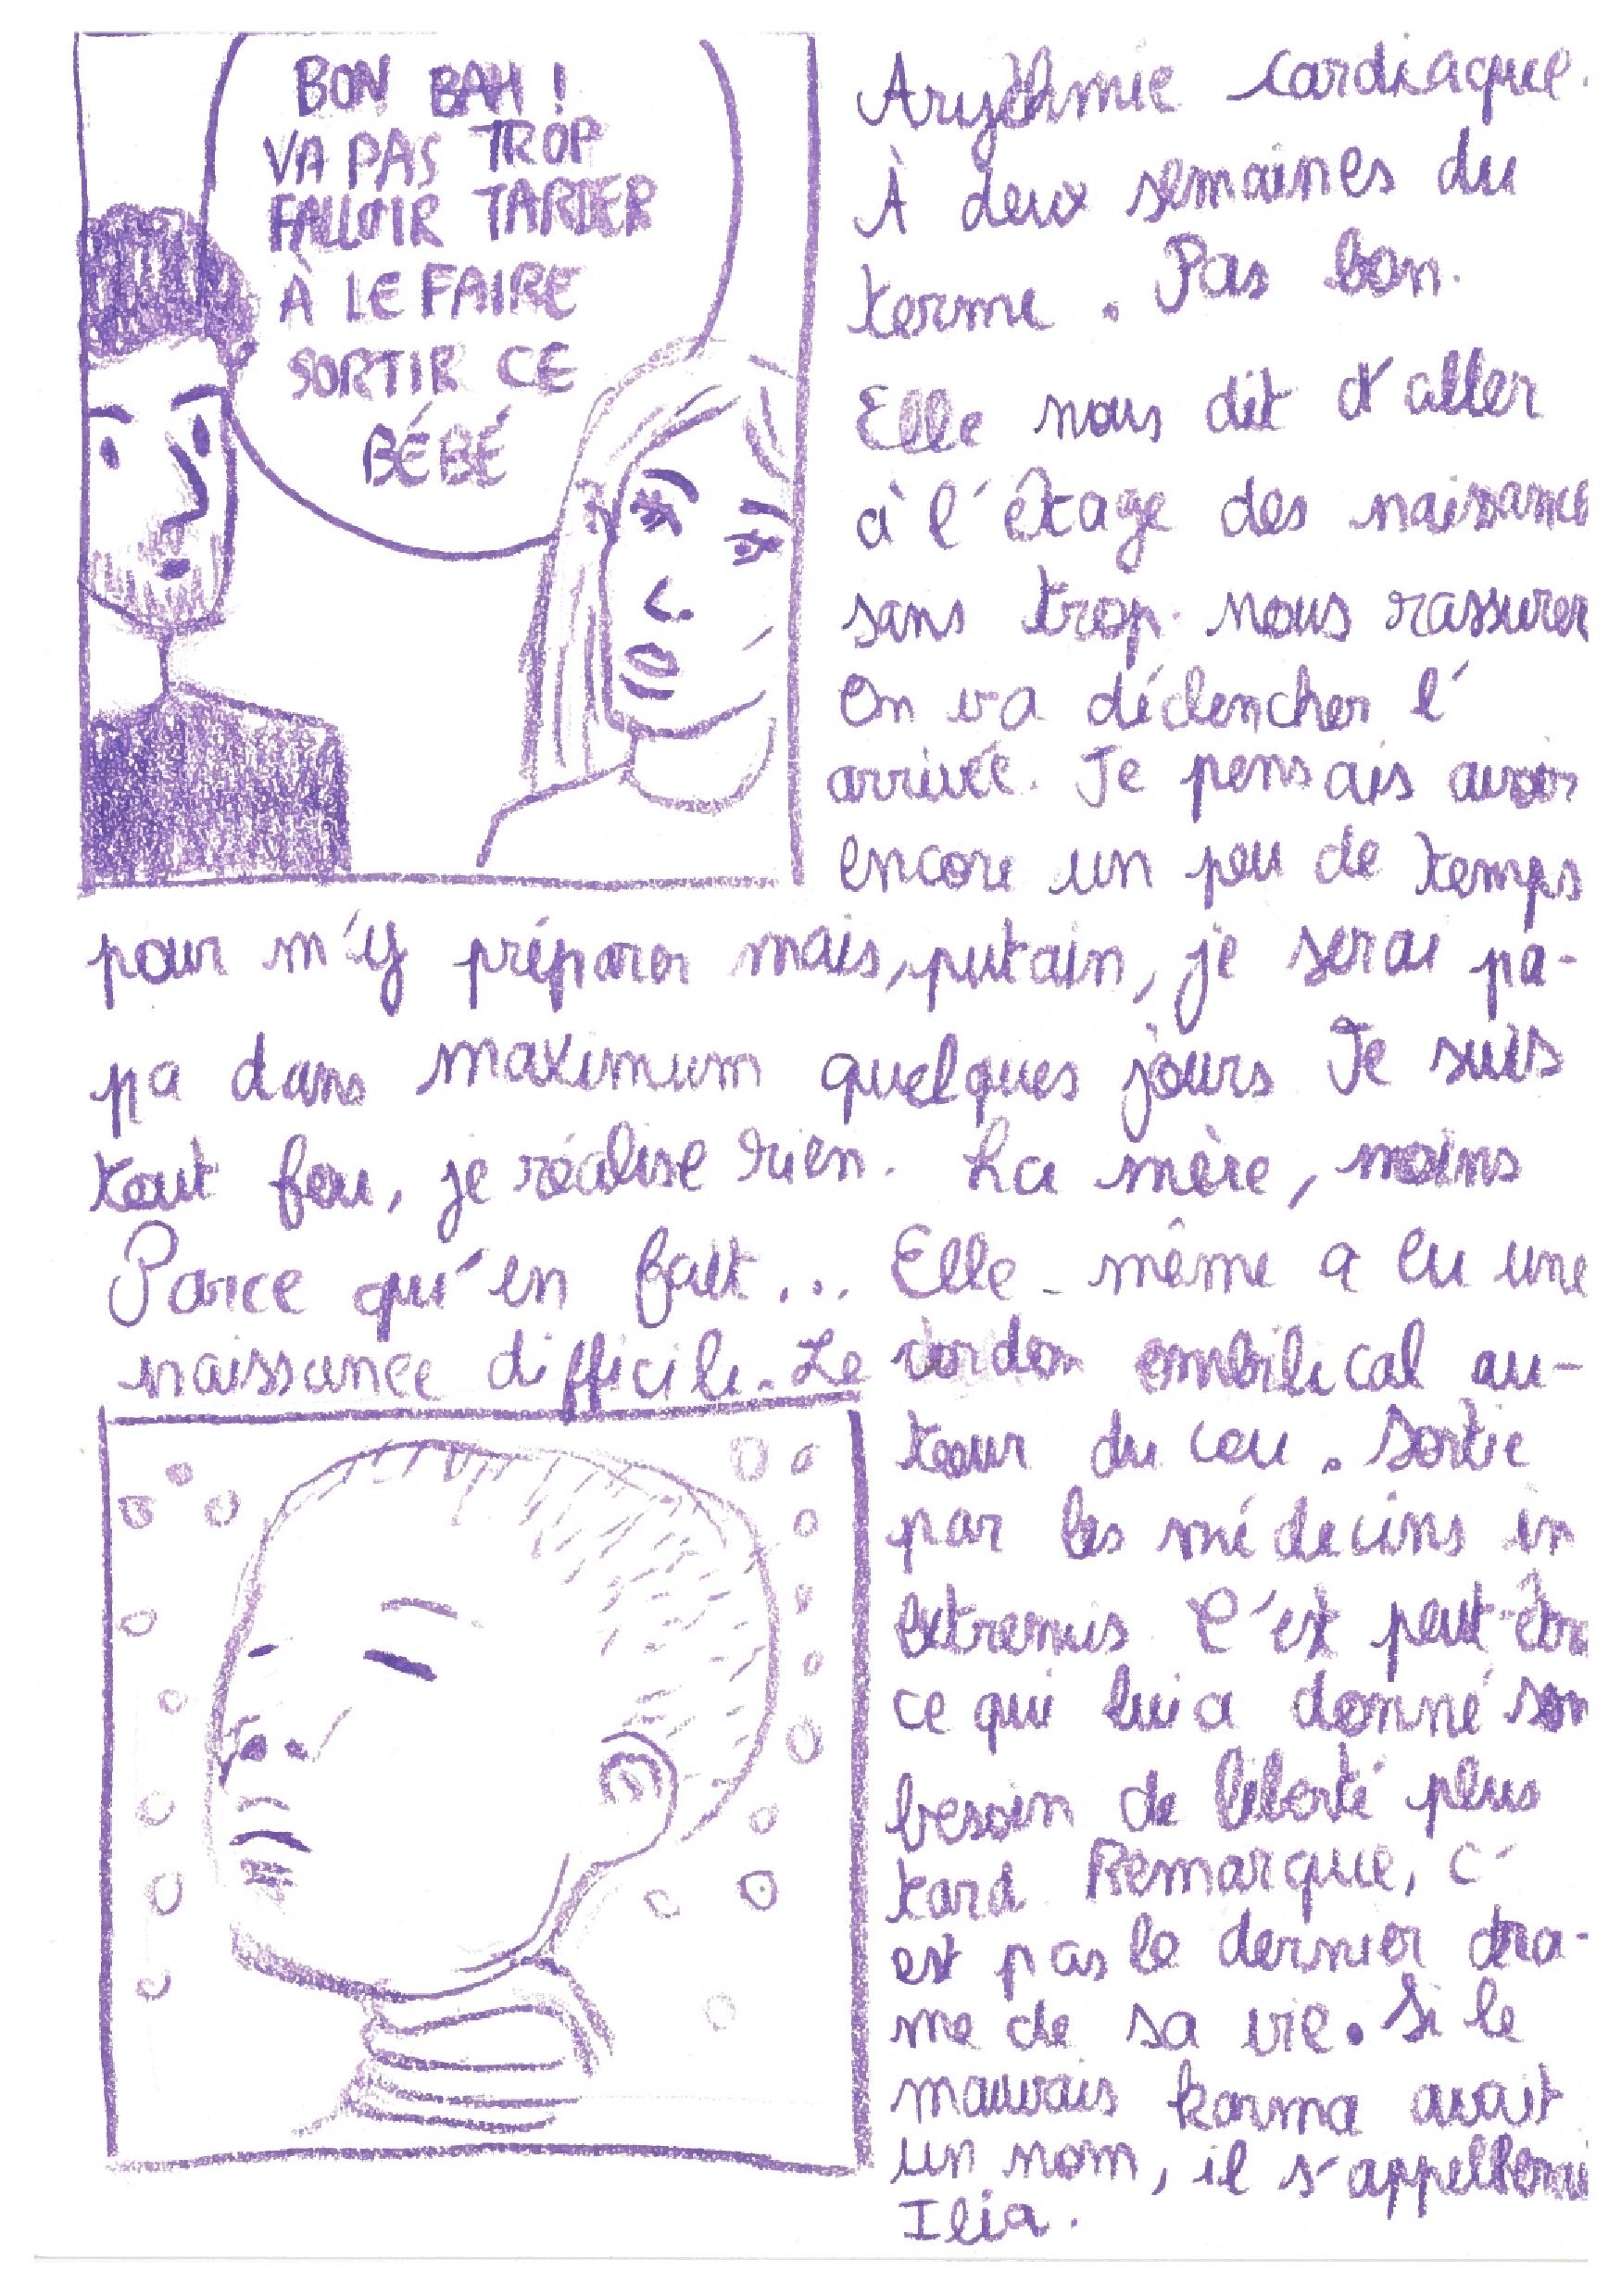 BON BAH !
VA PAS TROP
FALLOIR TARDER
À LE FAIRE
SORTIR CE
BÉBÉ
Arythmie cardiaque.
À deux semaines du
terme. Pas bon.
Elle nous dit d'aller
à l'étage des naissance
sans trop nous rassurer
On va déclencher l'
arrivée. Je pensais avoir
encore un peu de temps
pour m'y préparer mais, putain, je serai pa-
pa dans maximum quelques jours Je suis
tout feu, je réalise rien. La mère, moins
Parce qu'en fait... Elle-même a eu une
naissance difficile. Le cordon ombilical au-
tour du cou. Sortie
par les médecins in
extremis. C'est peut-être
ce qui lui a donné son
besoin de liberté plus
tard. Remarque, c'
est pas le dernier dra-
me de sa vie. Si le
mauvais karma avait
un nom, il s'appellerai
Ilia.